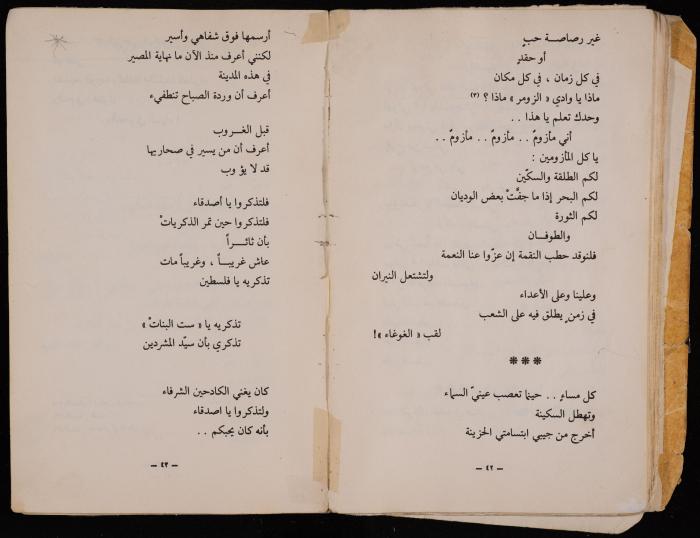 غير رصاصـــة حبٍ
أو حقدٍ
في كل زمان ، في كل مكان
ماذا يا وادي « الزومر » ماذا ؟ (٣)
وحدك تعلم يا هذا . .
أني مأزومٌ . . مأزومٌ . . مأزومٌ . .
يا كل المأزومين :
لكم الطلقة والسكّين
لكم البحر إذا ما جفّتْ بعض الوديان
لكم الثورة
والطوفـــان
فلنوقد حطب النقمة إن عزّوا عنا النعمة
ولتشتعل النيران
وعلينا وعلى الأعداء
في زمنٍ يطلق فيه على الشعب
لقب « الغوغاء »!
***
كل مساءٍ . . حينما تعصب عينيّ السماء
وتهطل السكينة
أخرج من جيبي ابتسامتي الحزينة
– ٤٢ –
أرسمها فوق شفاهي وأسير
لكنني أعرف منذ الآن ما نهاية المصير
في هذه المدينة
أعرف أن وردة الصباح تنطفيء
قبل الغـــروب
أعرف أن من يسير في صحاريها
قد لا يؤوب
فلتذكروا يا أصدقاء
فلتذكروا حين تمر الذكرياتْ
بأن ثائـــراً
عاش غريبـــاً ، وغريباً مات
تذكريه يا فلسطين
تذكريه يا « ست البناتْ »
تذكري بأن سيّد المشردين
كان يغني الكادحين الشرفاء
ولتذكروا يا اصدقاء
بأنه كان يحبكم . .
– ٤٣ –